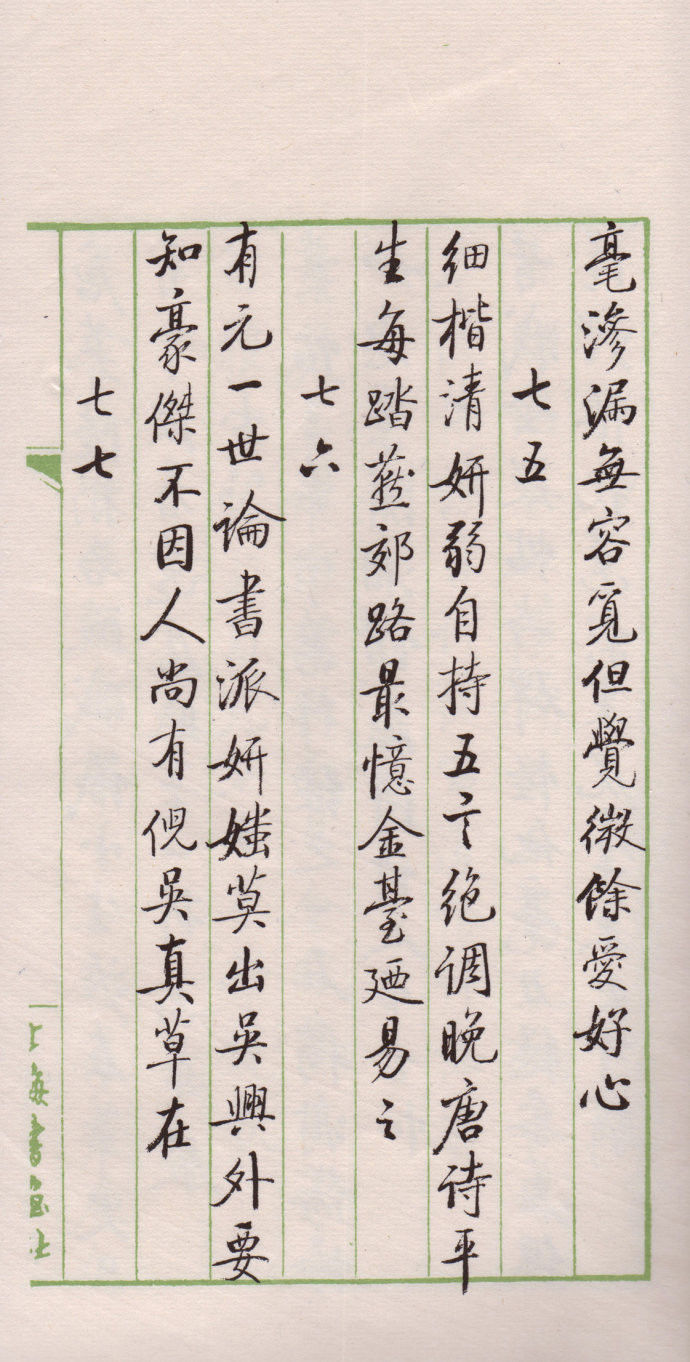 毫滲漏無容覓但覺微餘愛好心
七五
细楷清妍弱自持五言绝调晚唐诗平
生每踏燕郊路最憶金臺廼易之
七六
有元一世論書派妍媸莫出吳興外要
知豪傑不因人尚有倪吳真草在
七七
上海書畫社